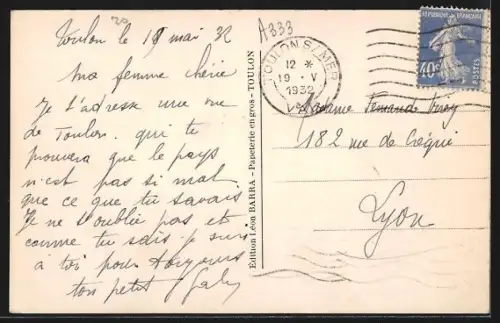 Toulon le 19 mai 32
A333
Ma femme chérie
Je t'adresse une vue
de Toulon. qui te
prouvera que le pays
n'est pas si mal
que ce que tu savais
Je ne t'oublie pas et
comme tu sais je suis
à toi pour toujours
ton petit Gaby
Edition Léon BARRA - Papeterie en gros - TOULON
TOULON S/MER
12 *
19 - V
1932
VAR
REPUBLIQUE FRANÇAISE
40c
POSTES
Madame Fernande
182 rue de Créqui
Lyon